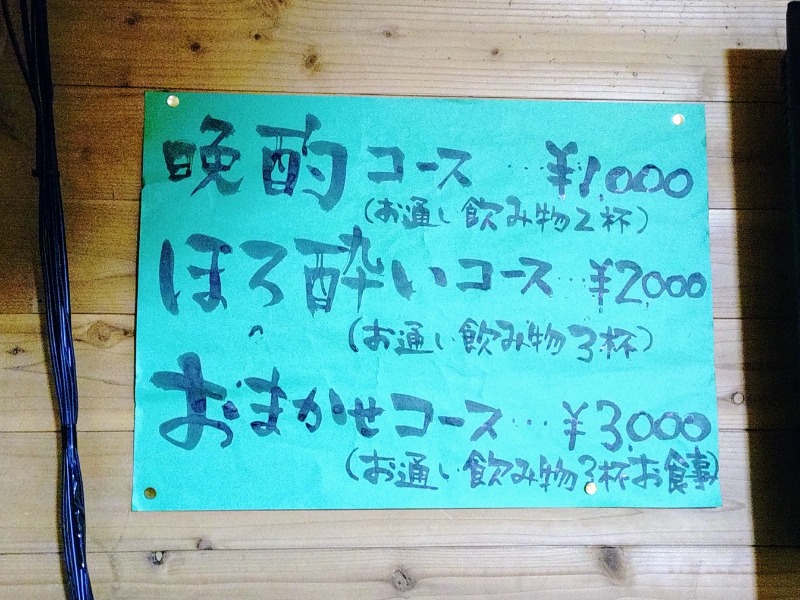 晩酌コース…¥1,000
(お通し飲み物2杯)
ほろ酔いコース…¥2,000
(お通し飲み物3杯)
おまかせコース…¥3,000
(お通し飲み物3杯お食事)